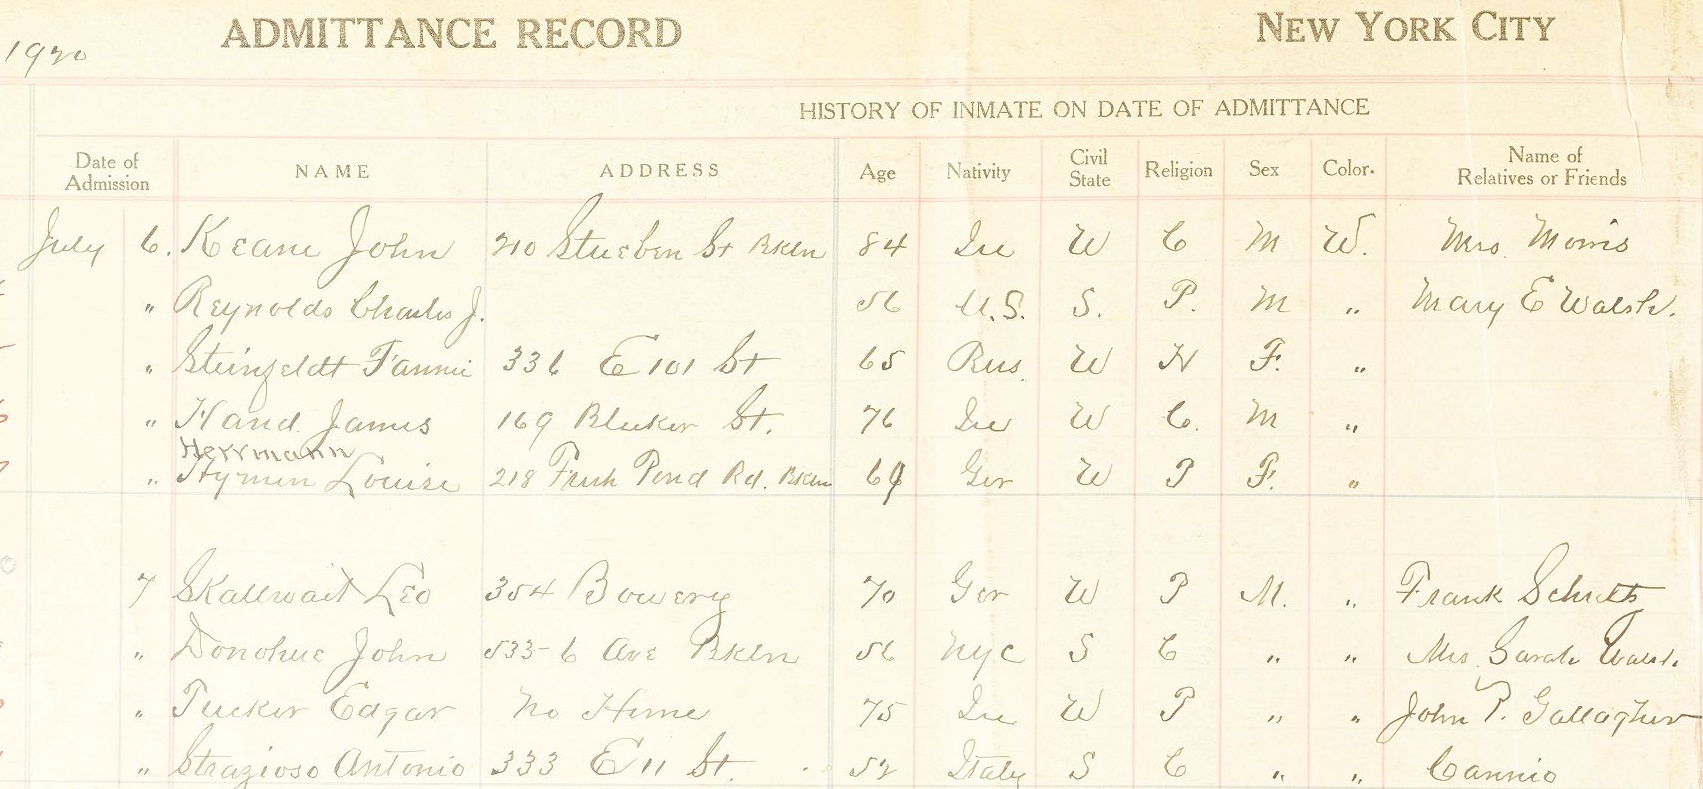 1920
ADMITTANCE RECORD NEW YORK CITY
HISTORY OF INMATE ON DATE OF ADMITTANCE
Date of Admission NAME ADDRESS Age Nativity Civil State Religion Sex Color. Name of Relatives or Friends
July 6. Keane John 210 Stueben St Bkln 84 Ire W C M W. Mrs. Morris
" Reynolds Charles J. 56 U.S. S. P. M " Mary E Walsh.
" Steinfeldt Fannie 336 E 101 St 65 Rus. W H F. "
" Hand James 169 Bleeker St. 76 Ire W C. M "
Herrmann
" Hymen Louise 218 Fresh Pond Rd. Bkln 69 Ger W P F. "
7 Skallwait Leo 354 Bowery 70 Ger W P M. " Frank
" Donohue John 533-6 Ave Bkln 56 NYC S C " " Mrs. Sarah Walsh.
" Tucker Edgar No Home 75 Ire W P " " John P. Gallagher
" Strazioso Antonio 333 E 11 St. 52 Italy S C " " Cannio